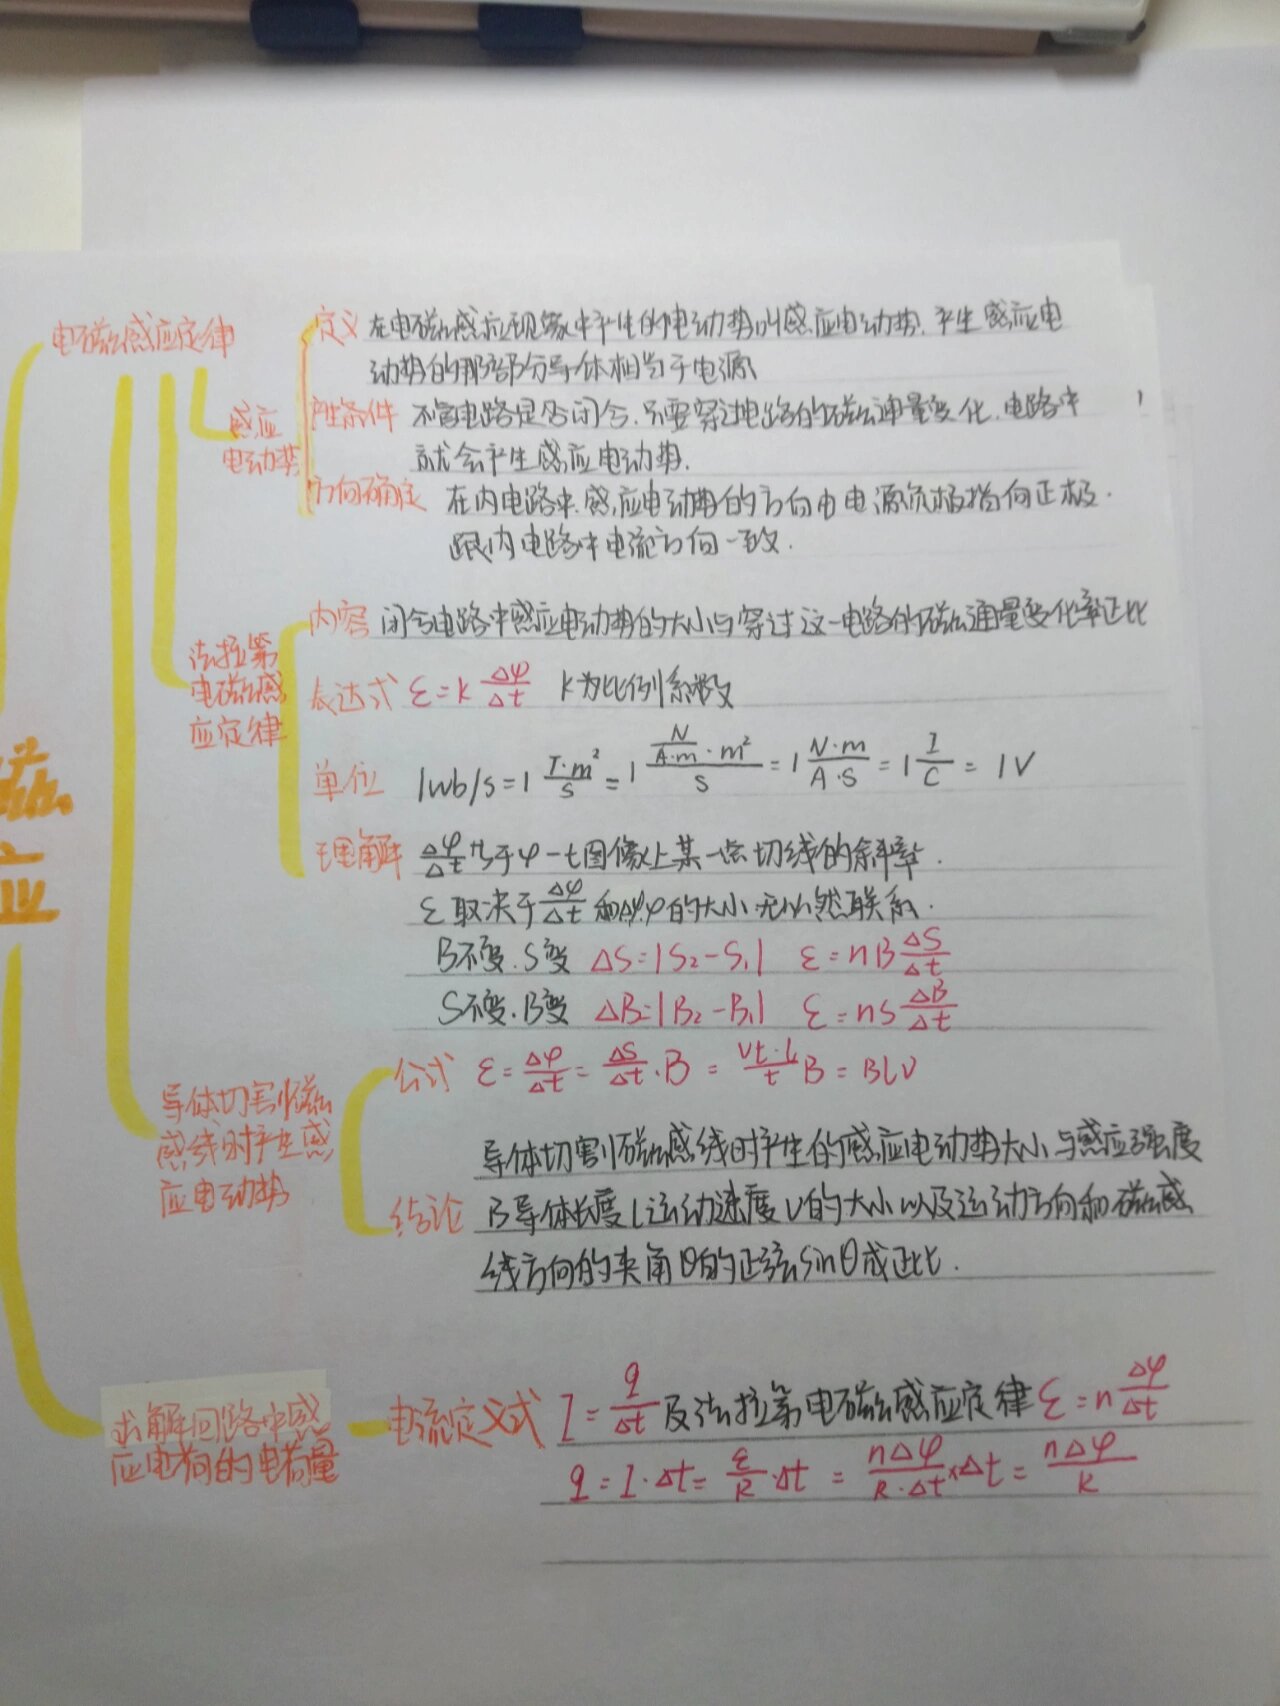 电磁感应定律
定义 在电磁感应现象中产生的电动势叫感应电动势. 产生感应电
动势的那部分导体相当于电源
感应
电动势
产生条件 不管电路是否闭合. 只要穿过电路的磁通量变化. 电路中
就会产生感应电动势.
方向确定 在内电路中. 感应电动势的方向由电源负极指向正极.
跟内电路中电流方向一致.
内容 闭合电路中感应电动势的大小与穿过这一电路的磁通量变化率正比
法拉第
电磁感
应定律
表达式 ε=k Δφ/Δt k为比例系数
单位 1wb/s=1 T·m²/s = 1 N/A·m·m²/s = 1 N·m/A·s = 1 J/C = 1V
理解 Δφ/Δt 等于φ-t图像上某一点切线的斜率.
ε取决于Δφ/Δt 和Δφ.φ的大小无必然联系.
B不变.S变 ΔS=|S₂-S₁| ε=nBΔS/Δt
S不变.B变 ΔB=|B₂-B₁| ε=nSΔB/Δt
磁
应
公式 ε=Δφ/Δt=ΔS/Δt·B=vt·L/t B=BLv
导体切割磁
感线时产生感
应电动势
导体切割磁感线时产生的感应电动势大小与感应强度
结论 B导体长度l运动速度v的大小以及运动方向和磁感
线方向的夹角θ的正弦sinθ成正比.
求解回路中感
应电荷的电荷量
电流定义式 I=q/Δt及法拉第电磁感应定律ε=nΔφ/Δt
q=I·Δt=ε/R·Δt=nΔφ/R·Δt×Δt=nΔφ/R